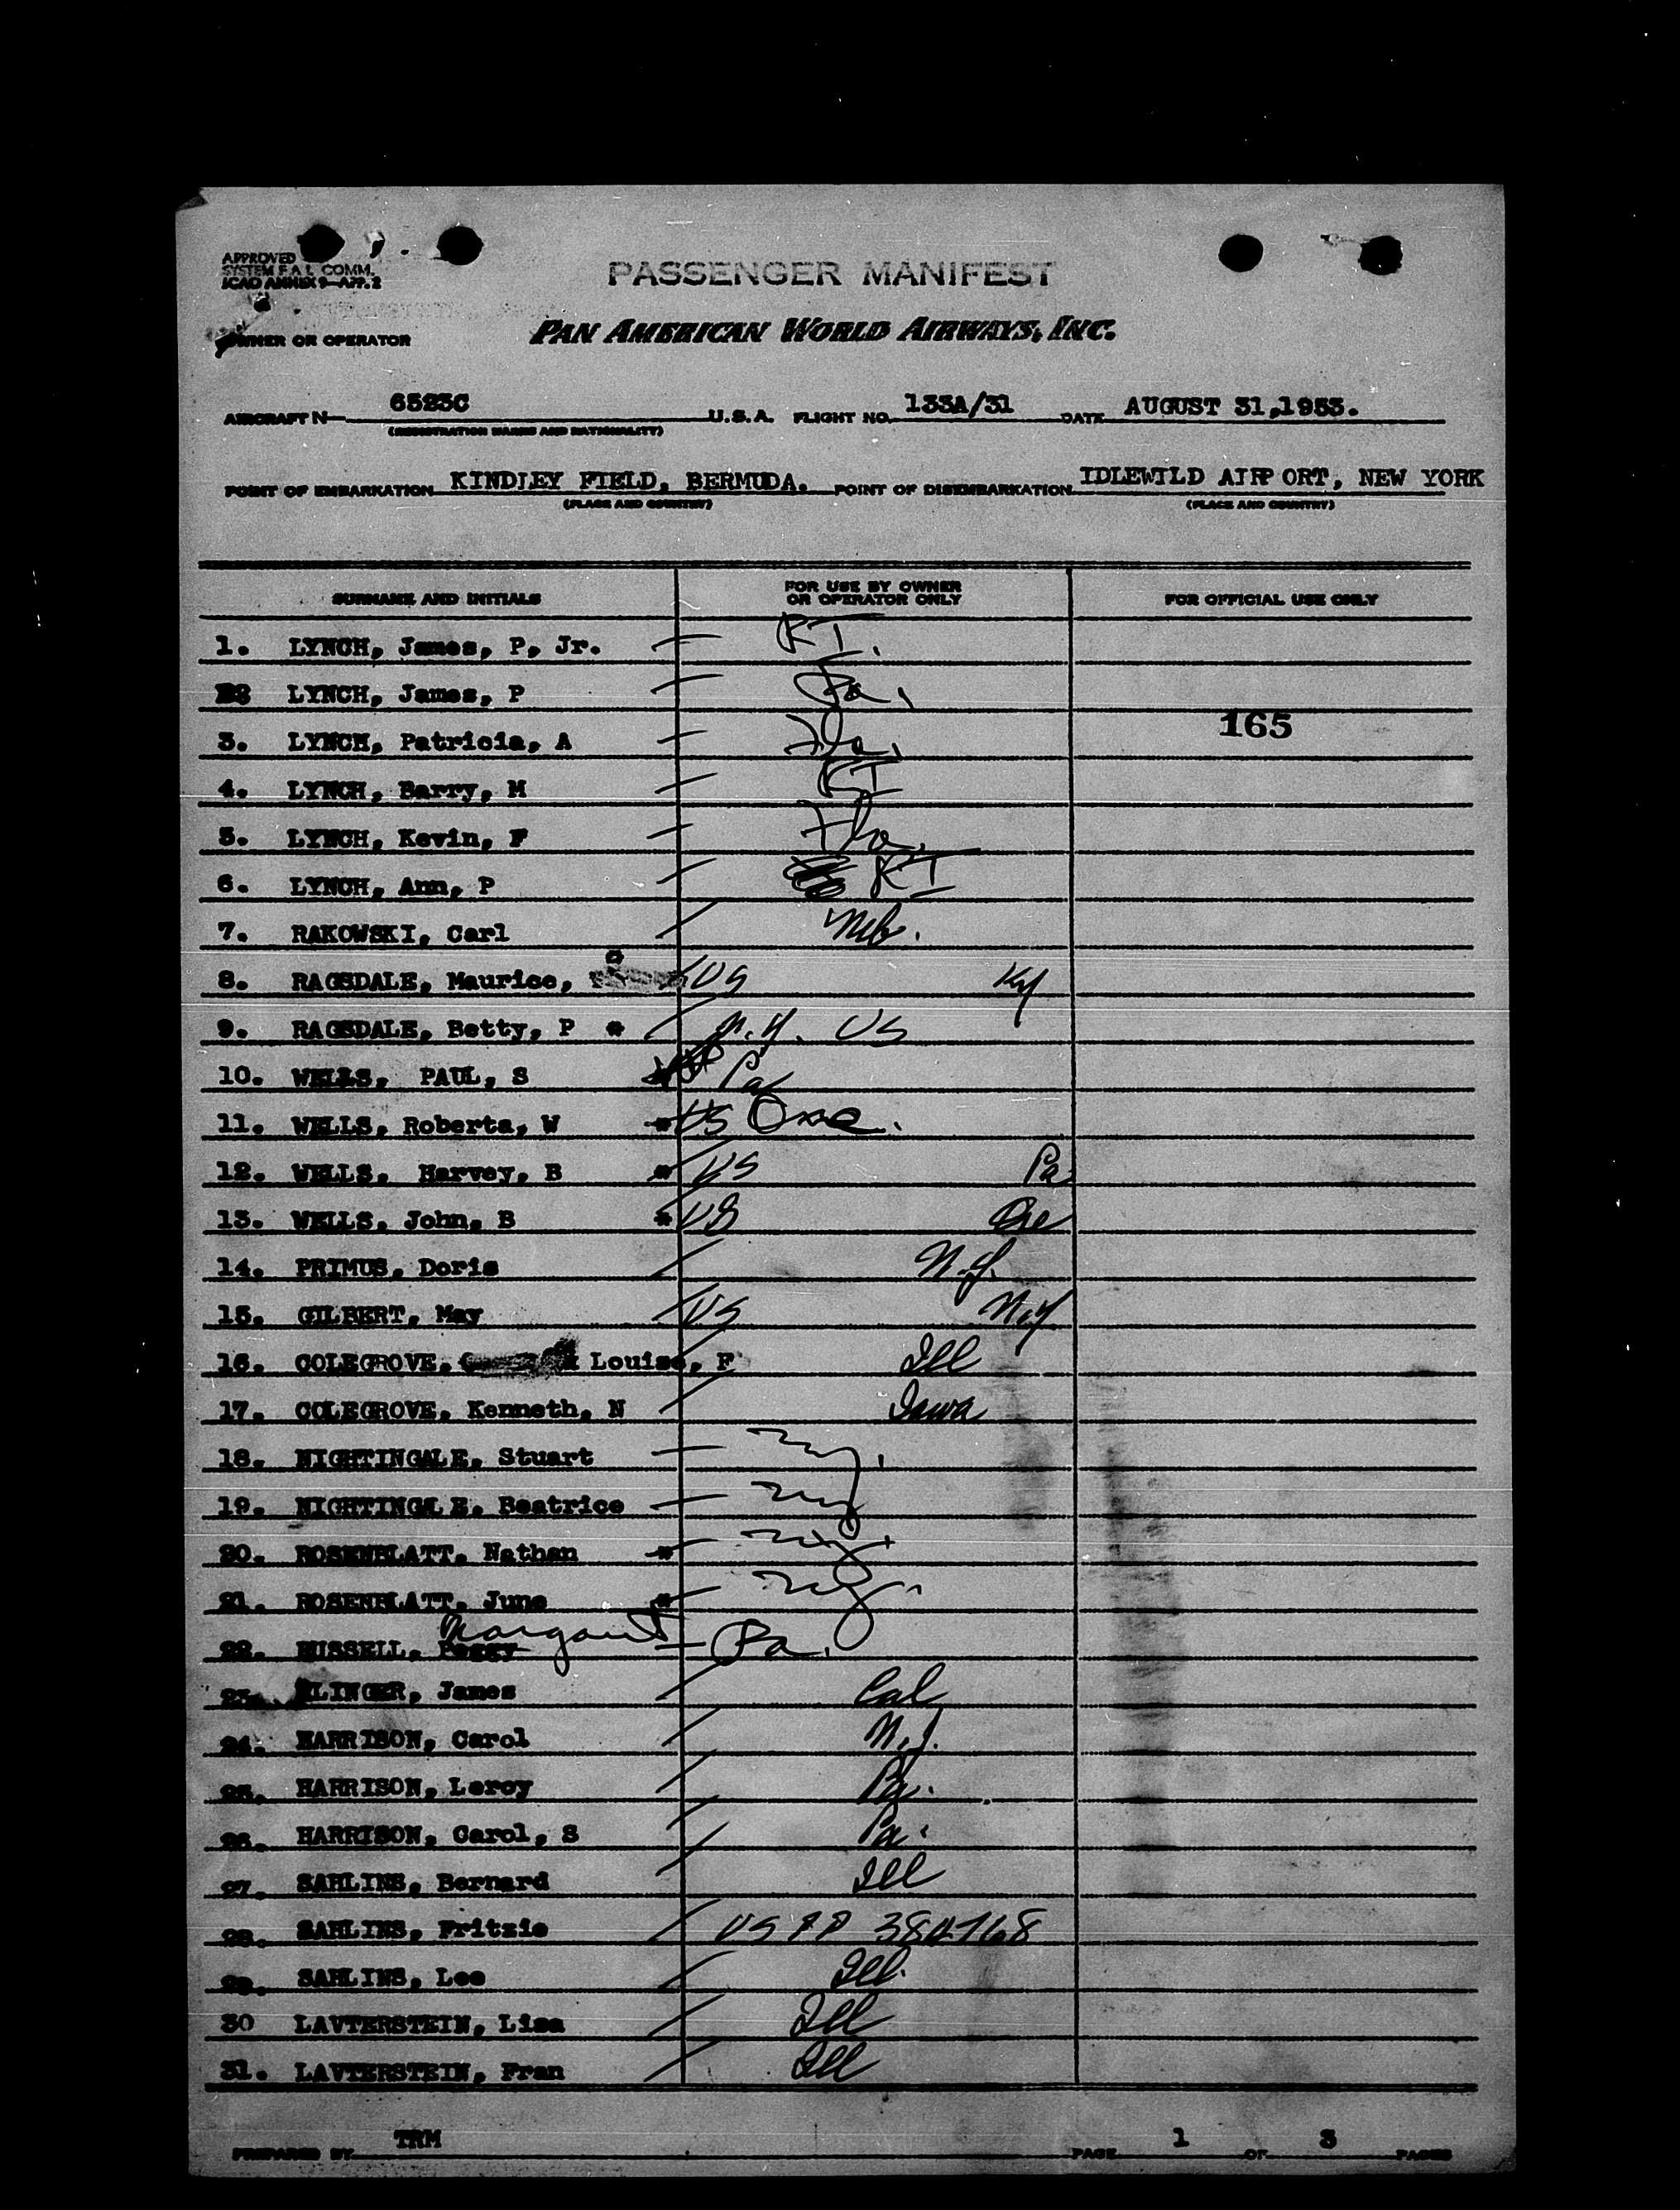 APPROVED
SYSTEM F.A.L. COMM.
ICAO ANNEX 9—APP. 2
PASSENGER MANIFEST
OWNER OR OPERATOR PAN AMERICAN WORLD AIRWAYS, INC.
AIRCRAFT N— 6523C U.S.A. FLIGHT NO. 133A/31 DATE AUGUST 31,1953.
(REGISTRATION MARKS AND NATIONALITY)
POINT OF EMBARKATION KINDLEY FIELD, BERMUDA. POINT OF DISEMBARKATION IDLEWILD AIRP ORT, NEW YORK
(PLACE AND COUNTRY) (PLACE AND COUNTRY)
SURNAME AND INITIALS FOR USE BY OWNER OR OPERATOR ONLY FOR OFFICIAL USE ONLY
1. LYNCH, James, P, Jr. RI.
LYNCH, James, P Pa.
165
3. LYNCH, Patricia, A Fla.
4. LYNCH, Barry, M RI
5. LYNCH, Kevin, F Fla.
6. LYNCH, Ann, P RI
7. RAKOWSKI, Carl Neb.
8. RAGSDALE, Maurice, * US Ky
9. RAGSDALE, Betty, P * N.Y. US
10. WELLS, PAUL, S Pa
11. WELLS, Roberta, W * US Ore.
12. WELLS, Harvey, B * US Pa.
13. WELLS, John, B * US Ore
14. PRIMUS, Doris N.Y.
15. GILBERT, May US N.Y
16. COLEGROVE, Louise, F Ill
17. COLEGROVE, Kenneth, N Iowa
18. NIGHTINGALE, Stuart NY.
19. NIGHTINGALE, Beatrice NY
20. ROSENBLATT, Nathan * NY.
21. ROSENBLATT, June * NY.
Margaret
22. RUSSELL, Peggy Pa.
23. KLINGER, James Cal
24. HARRISON, Carol N.J.
25. HARRISON, Leroy Pa.
26. HARRISON, Carol, S Pa.
27. SAHLINS, Bernard Ill
28. SAHLINS, Fritzie US PP
29. SAHLINS, Lee Ill.
30 LAVTERSTEIN, Lisa Ill
31. LAVTERSTEIN, Fran Ill
PREPARED BY TRM PAGE 1 OF 3 PAGES